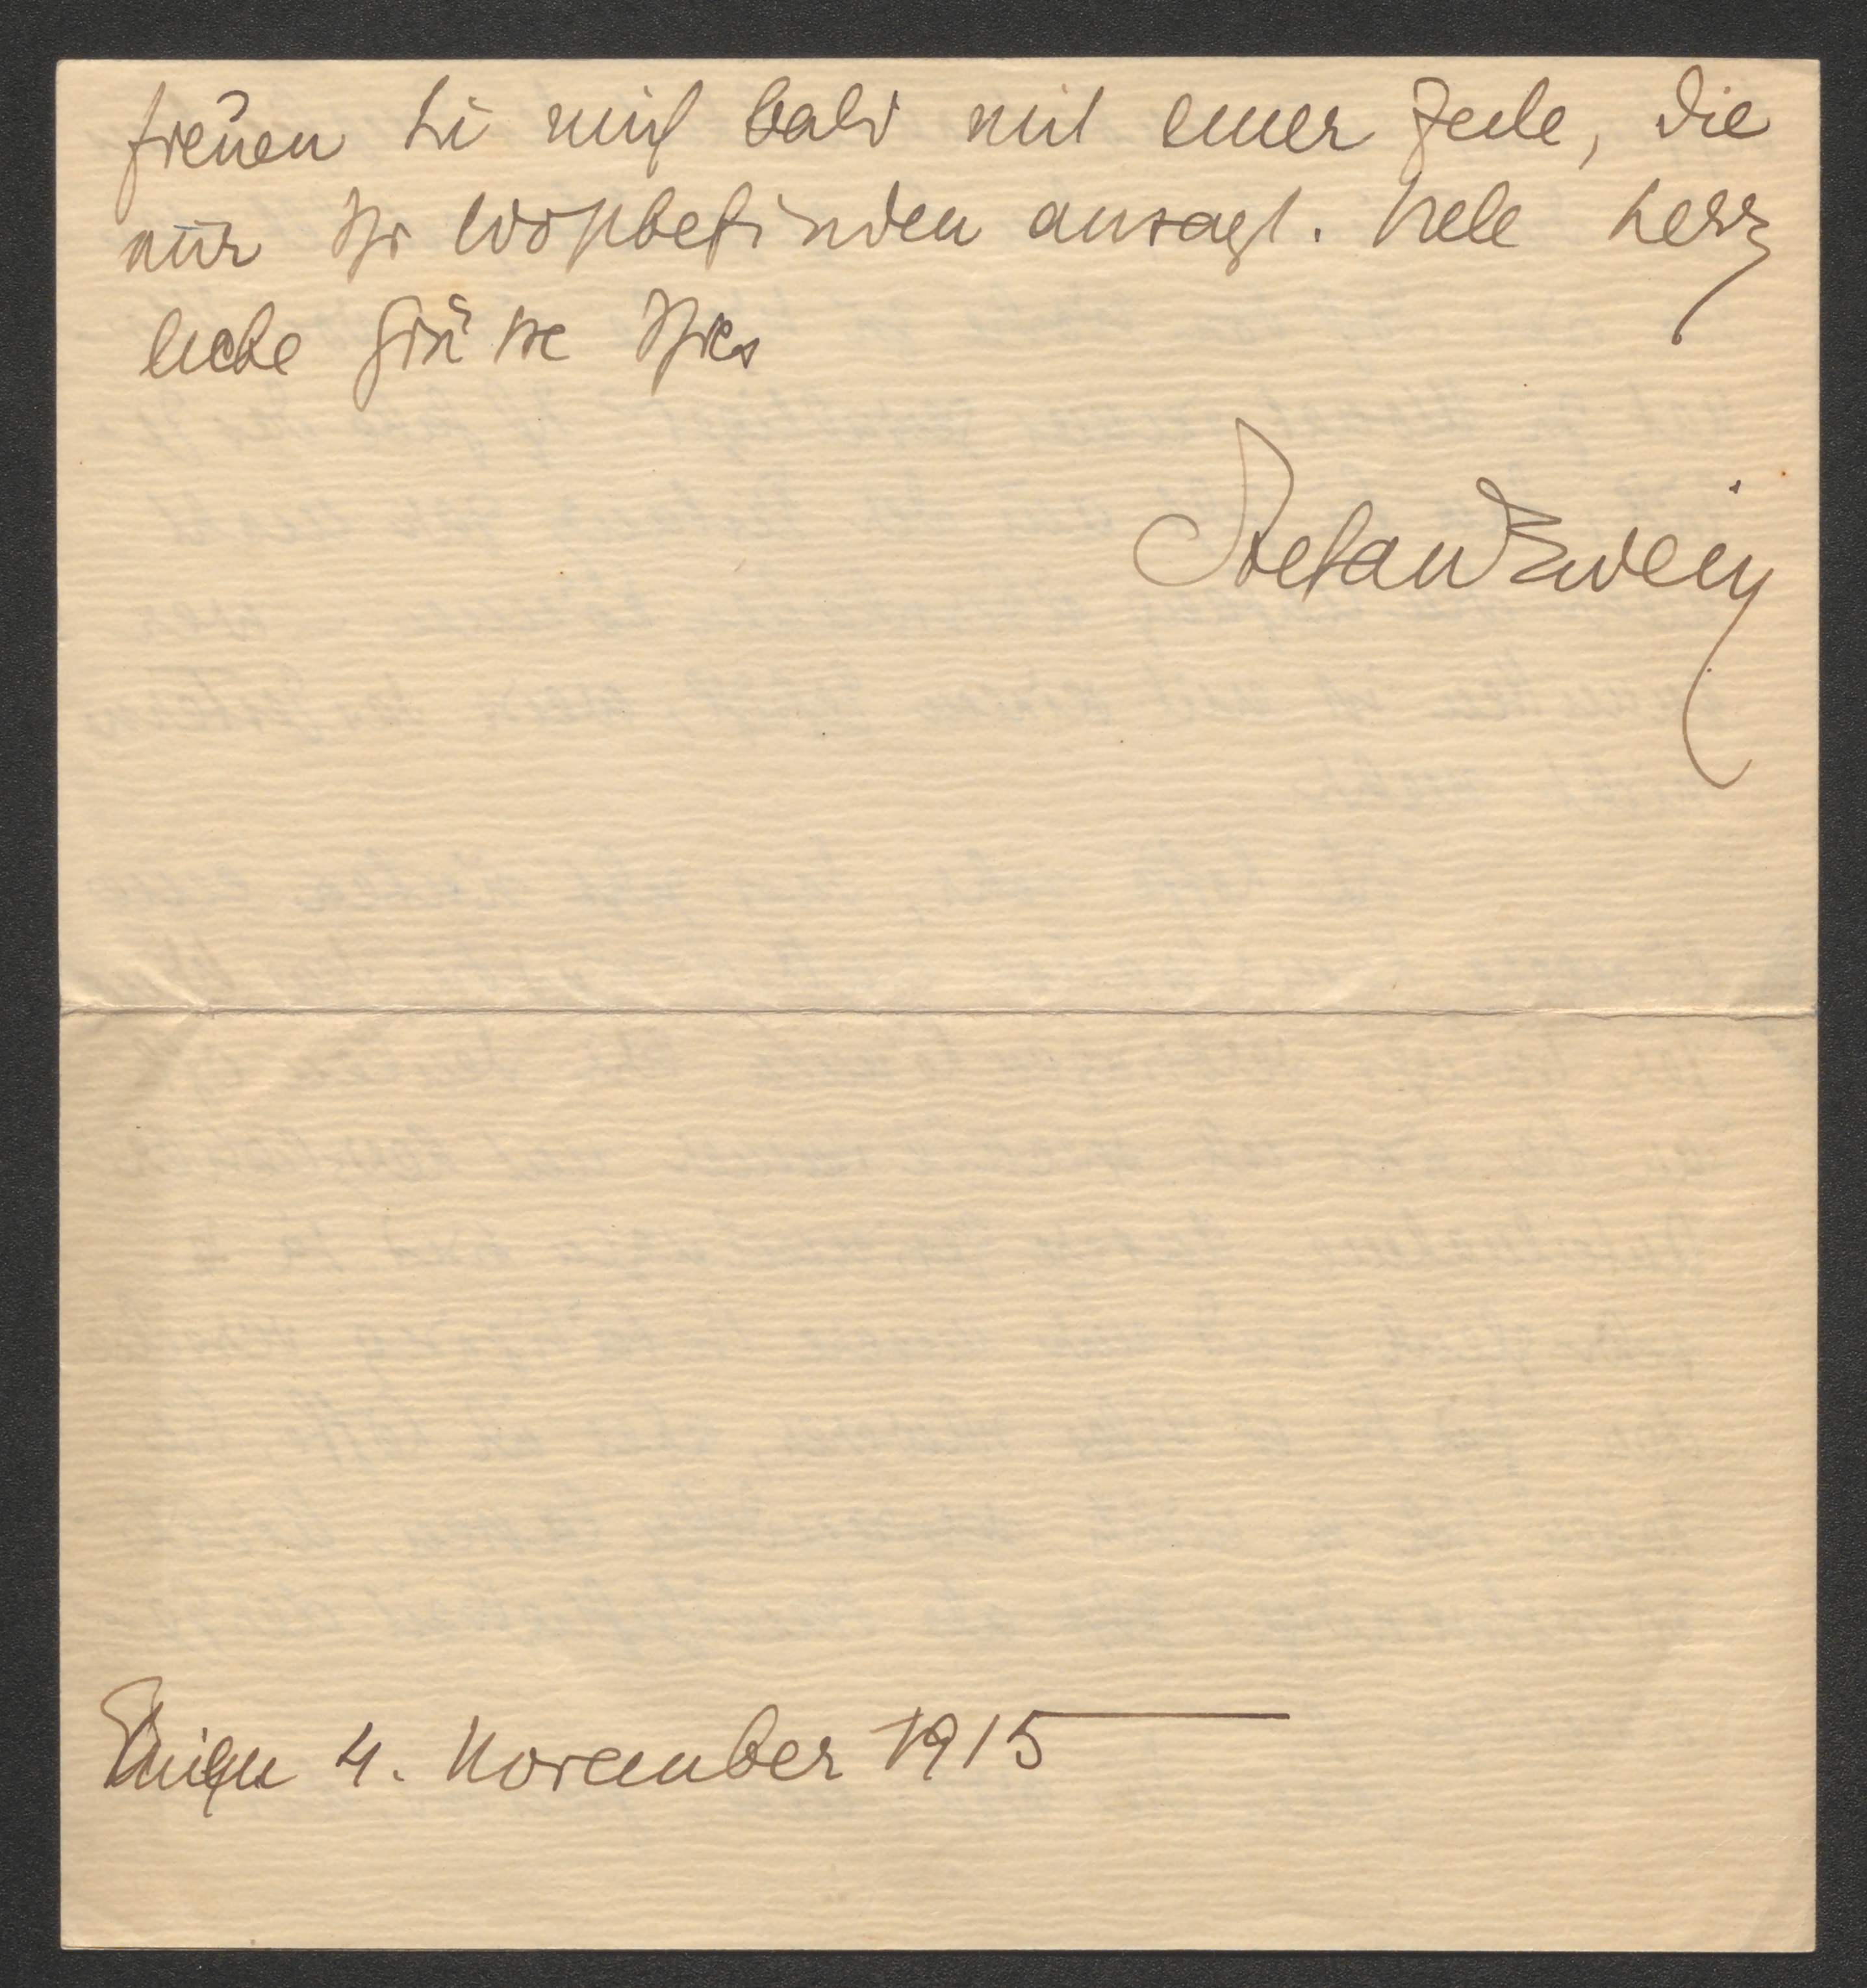 freuen Sie mich bald mit einer Zeile, die
nur Ihr Wohlbefinden ansagt. Viele herz
liche Grüsse Ihres
Stefan Zweig
4. November 1915